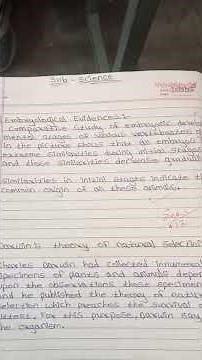 Sub - Science
Embryological Evidences :
Comparative study of embryonic develo
mental stages of various vertebrates
in the picture shows that all embryos
extreme similarities during initial stages
and those similarities decrease gradually
Similarities in initial stages indicate t
common origin of all these animals.
Darwin's theory of natural selection
Charles Darwin had collected innumera
specimens of plants and animals depen
upon the observations these specimen
and he published the theory of natur
selection which preaches the survival of
fittest. For this purpose, Darwin
the organism.